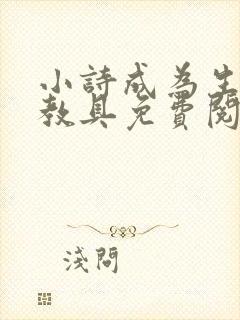 小詩成為生
教具免費閱
淺問